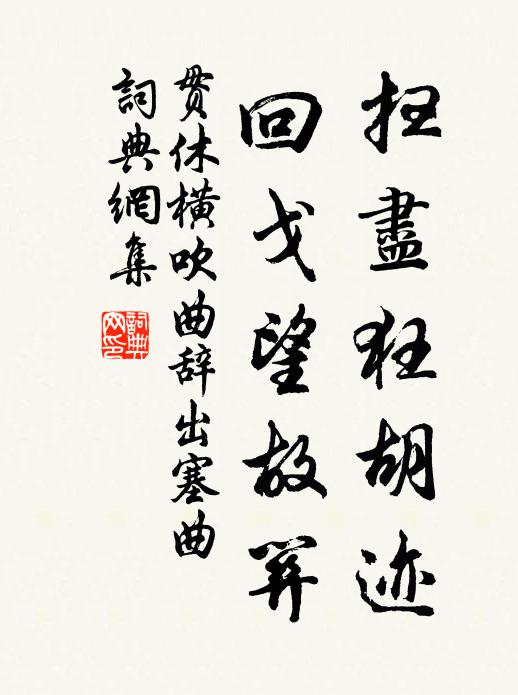 扫盡狂胡迹
回戈望故关
贯休横吹曲辞出塞曲
詞典網集
詞典网印